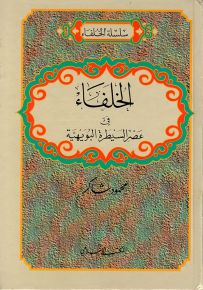 سلسلة الخلفاء
الخلفاء
في
عصر السيطرة البويهية
محمود شاكر
المكتب الإسلامي